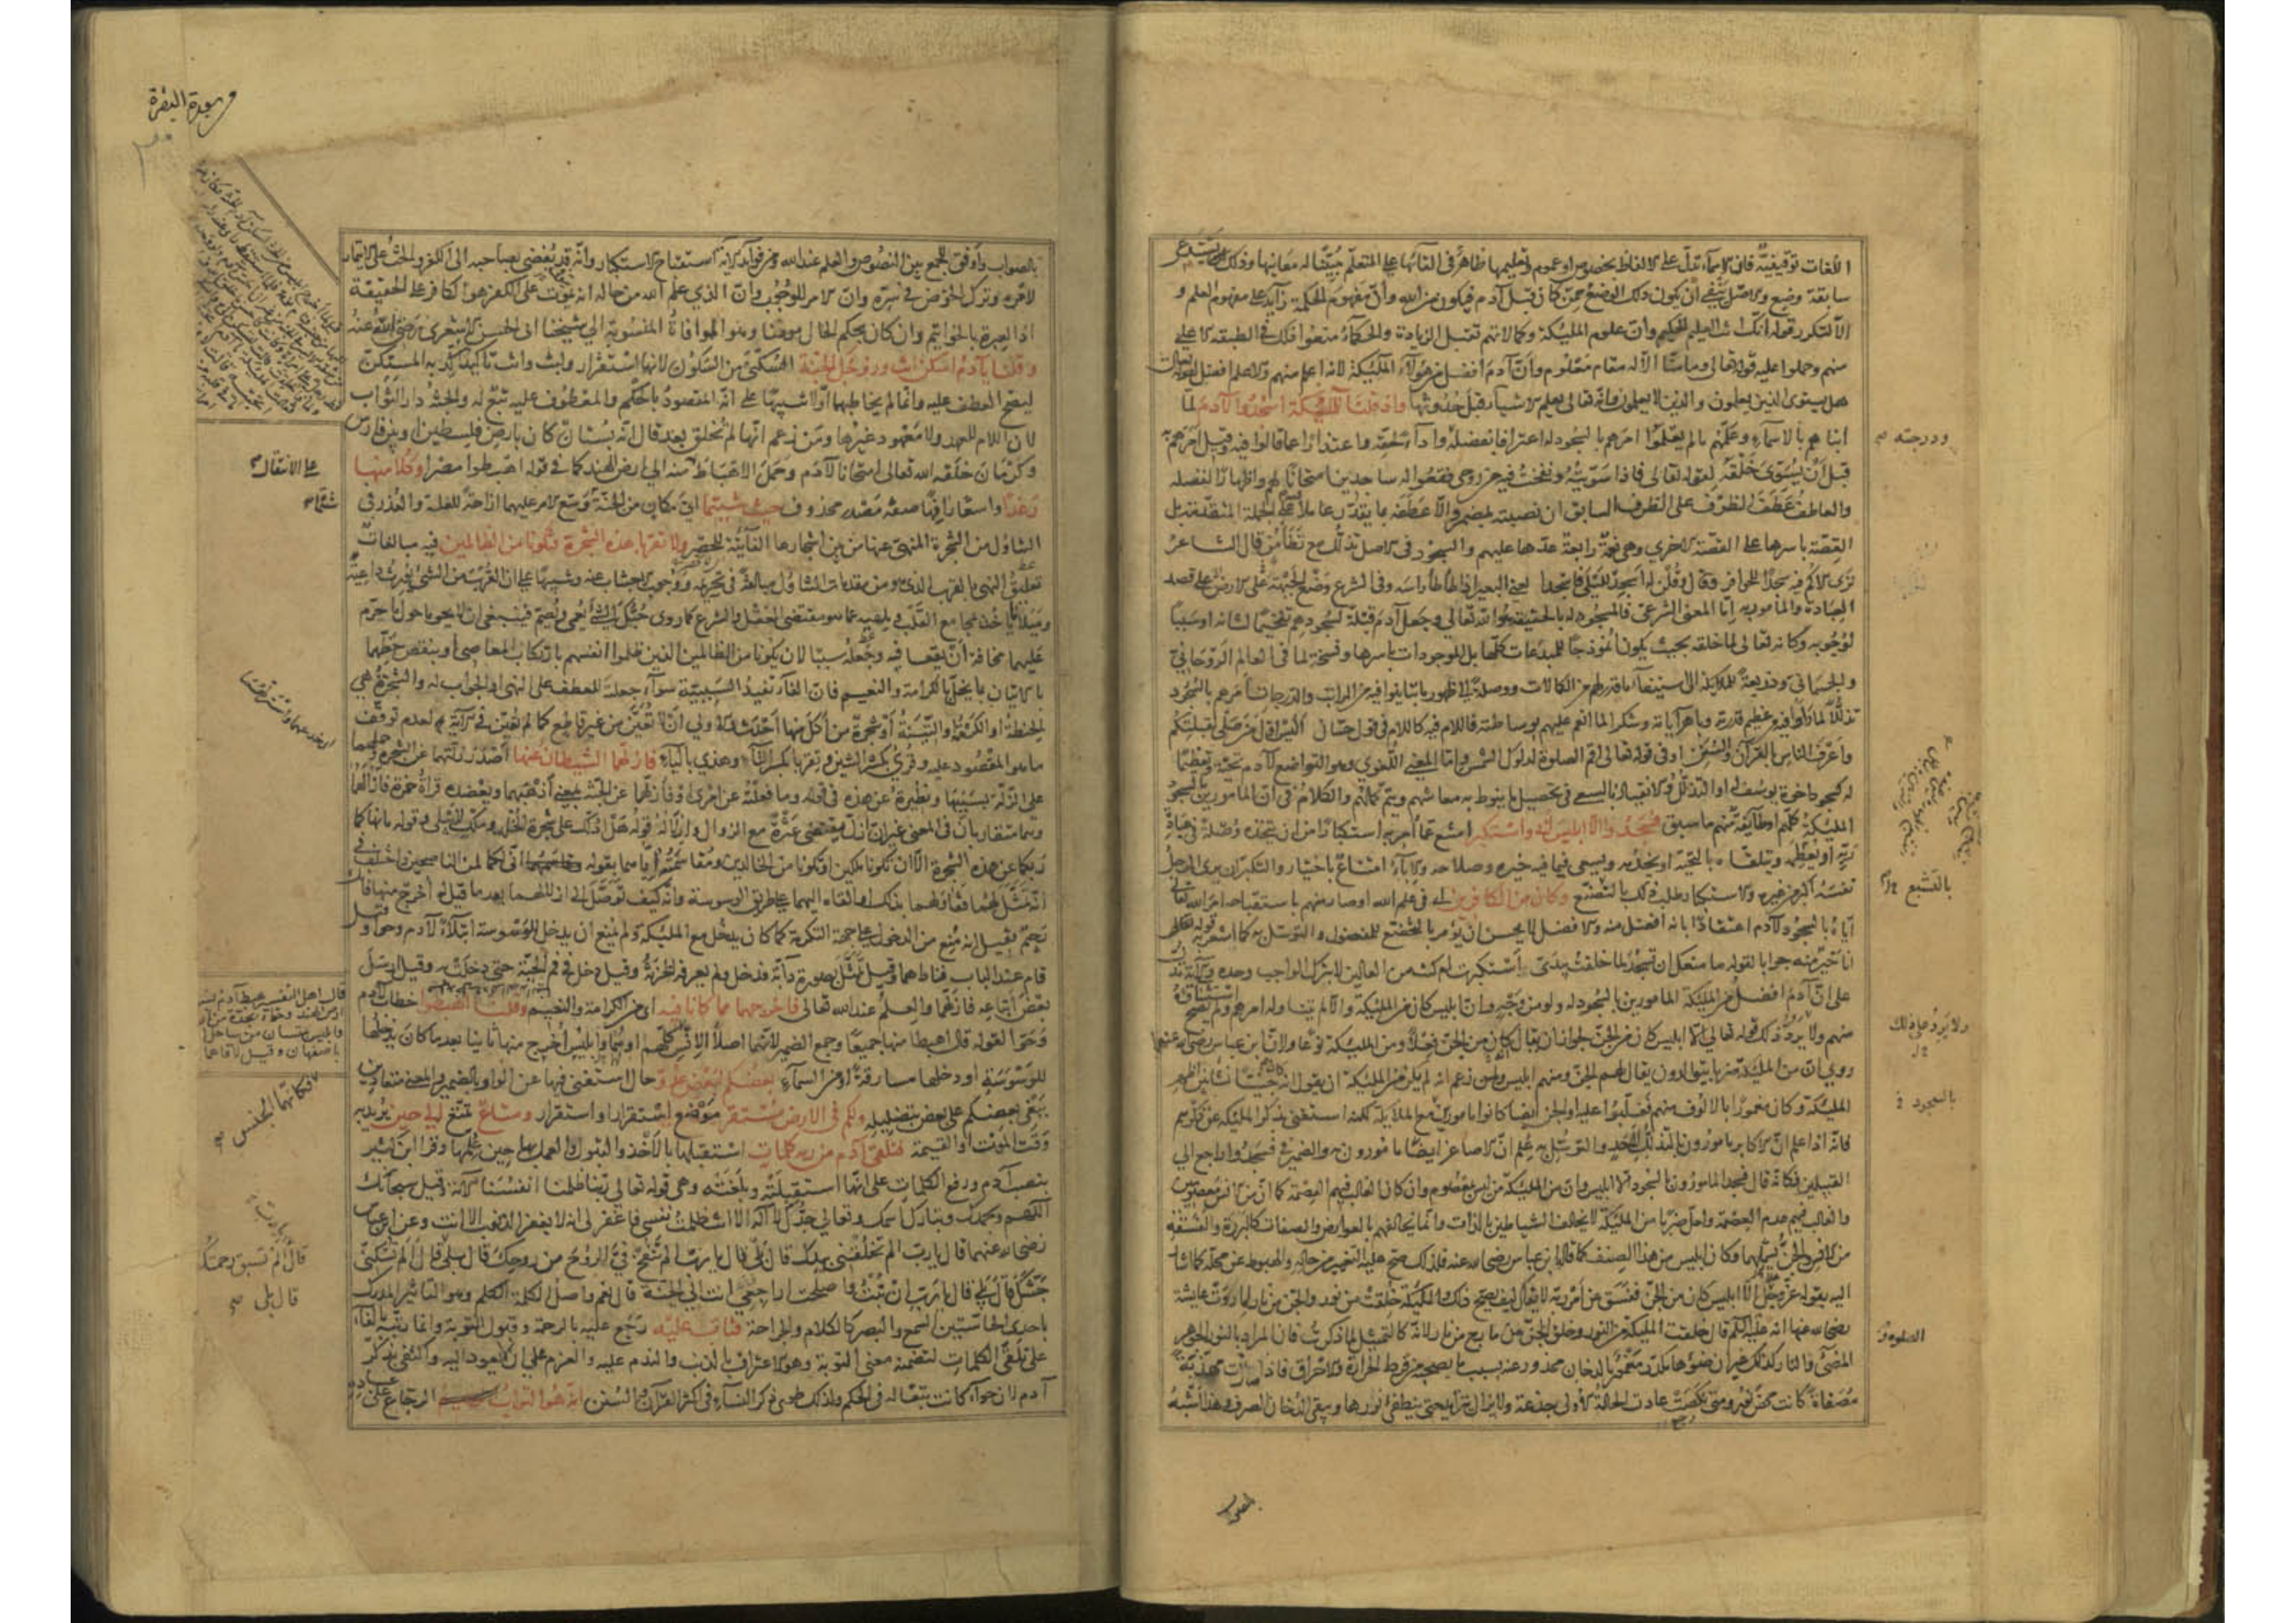 اللغات توقيفية فان الاسماء تدل على الالفاظ بخصوص او عموم وتعليمها ظاهر فى القائها على المتعلم مبينا له معانيها وذلك يستدعى
سابقة وضع والاصل ينفى ان يكون ذلك الوضع ممن كان قبل آدم فيكون من الله وان مفهوم الحكمة زائد على مفهوم العلم و
الا لتكرر قوله انك انت العليم الحكيم وان علوم المليكة وكمالاتهم تقبل الزيادة والحكماء منعوا ذلك فى الطبقة الاعلى
منهم وحملوا عليه قوله تعالى وما منا الا له مقام معلوم وان آدم افضل من هؤلاء المليكة لانه اعلم منهم والاعلم افضل لقوله تعالى
هل يستوى الذين يعلمون والذين لا يعلمون وانه تعالى يعلم الاشياء قبل حدوثها واذ قلنا للمليكة اسجدوا لآدم لما
انباهم بالاسماء وعلمهم ما لم يعلموا امرهم بالسجود له اعترافا بفضله واداء لحقه واعتذارا عما قالوا فيه وقيل امرهم به
قبل ان يسوى خلقه لقوله تعالى فاذا سويته ونفخت فيه من روحى فقعوا له ساجدين امتحانا لهم واظهارا لفضله
والعاطف عطف الظرف على الظرف السابق ان نصبته بمضمر والا عطفه بما يقدر عاملا فيه على الجملة المتقدمة بل
القصة باسرها على القصة الاخرى وهى نعمة رابعة عدها عليهم والسجود فى الاصل تذلل مع تطامن قال الشاعر
ترى الاكم فيه سجدا للحوافر وقال وقلن له اسجد لليلى فاسجدا يعنى البعير اذا طأطأ راسه وفى الشرع وضع الجبهة على الارض على قصد
العبادة والمامور به اما المعنى الشرعى فالمسجود له بالحقيقة هو الله تعالى وجعل آدم قبلة لسجودهم تفخيما لشانه او سببا
لوجوبه وكانه تعالى لما خلقه بحيث يكون انموذجا للمبدعات كلها بل للموجودات باسرها ونسخة لما فى العالم الروحانى
والجسمانى وذريعة للملئكة الى استيفاء ما قدر لهم من الكمالات ووصلة الى ظهور ما تباينوا فيه من المراتب والدرجات امرهم بالسجود
تذللا لما راوا فيه من عظيم قدرته وباهر آياته وشكرا لما انعم عليهم بوساطته فاللام فيه كاللام فى قول حسان اليس اول من صلى لقبلتكم
واعرف الناس بالقرآن والسنن او فى قوله تعالى اقم الصلوة لدلوك الشمس واما المعنى اللغوى وهو التواضع لآدم تحية وتعظيما
له كسجود اخوة يوسف له او التذلل والانقياد بالسعى فى تحصيل ما ينوط به معاشهم ويتم به كمالهم والكلام فى ان المامورين بالسجود
المليكة كلهم او طائفة منهم ما سبق فسجدوا الا ابليس ابى واستكبر امتنع عما امر به استكبارا من ان يتخذه وصلة فى عبادة
ربه او يعظمه ويتلقاه بالتحية او يخدمه ويسعى فيما فيه خيره وصلاحه والاباء امتناع باختيار والتكبر ان يرى الرجل
نفسه اكبر من غيره والاستكبار طلب ذلك بالتصنع وكان من الكافرين اى فى علم الله او صار منهم باستقباحه امر الله تعالى
اياه بالسجود لآدم اعتقادا بانه افضل منه والافضل لا يحسن ان يؤمر بالتخضع للمفضول والتوسل به كما اشعر به قوله
انا خير منه جوابا لقوله ما منعك ان تسجد لما خلقت بيدى استكبرت ام كنت من العالين لا بترك الواجب وحده والآية تدل
على ان آدم افضل من المليكة المامورين بالسجود له ولو من وجه وان ابليس كان من المليكة والا لم يتناوله امرهم ولم يصح استثناؤه
منهم ولا يرد ذلك قوله تعالى الا ابليس كان من الجن لجواز ان يقال كان من الجن فعلا ومن المليكة نوعا ولان ابن عباس رضى الله عنهما
روى ان من المليكة ضربا يتوالدون يقال لهم الجن ومنهم ابليس ولمن زعم انه لم يكن من المليكة ان يقول انه كان جنيا نشا بين اظهر
المليكة وكان مغمورا بالالوف منهم فغلبوا عليه او الجن ايضا كانوا مامورين مع الملايكة لكنه استغنى بذكر المليكة عن ذكرهم
فانه اذا علم ان الاكابر مامورون بالتذلل لاحد والتوسل به علم ان الاصاغر ايضا مامورون به والضمير فى فسجدوا راجع الى
القبيلين فكانه قال فسجد المامورون بالسجود الا ابليس وان من المليكة من ليس بمعصوم وان كان الغالب فيهم العصمة كما ان من الانس معصومين
والغالب فيهم عدم العصمة ولعل ضربا من المليكة لا يخالف الشياطين بالذات وانما يخالفهم بالعوارض والصفات كالبررة والفسقة
من الانس والجن يشملهما وكان ابليس من هذا الصنف كما قاله ابن عباس رضى الله عنه فلذلك صح عليه التغير من حاله والهبوط عن محله كما اشار
اليه بقوله عز وجل الا ابليس كان من الجن ففسق عن امر ربه لا يقال كيف يصح ذلك والمليكة خلقت من نور والجن من نار لما روت عايشة
رضى الله عنها انه عليه السلام قال خلقت المليكة من النور وخلق الجن من مارج من نار لانه كالتمثيل لما ذكرت فان المراد بالنور الجوهر
المضئ والنار كذلك غير ان ضوءها مكدر مغمور بالدخان محذور عنه بسبب ما يصحبه من فرط الحرارة والاحراق فاذا صارت مهذبة
مصفاة كانت محض نور ومتى نكصت عادت الحالة الاولى جذعة ولا يزال يتزايد حتى ينطفئ نورها ويبقى الدخان الصرف وهذا اشبه
ودرجته
بالتشبع
ولا يرد على ذلك
بالسجود
بالصواب
سورة البقرة
بالصواب واوفق للجمع بين النصوص والعلم عند الله ومن فوايد الآية استقباح الاستكبار وانه قد يفضى بصاحبه الى الكفر والحث على الايتمار
لامره وترك الخوض فى سره وان الامر للوجوب وان الذى علم الله من حاله انه يموت على الكفر هو الكافر على الحقيقة
اذ العبرة بالخواتيم وان كان بحكم الحال مومنا وهو الموافاة المنسوبة الى شيخنا ابى الحسن الاشعرى رضى الله عنه
وقلنا يا آدم اسكن انت وزوجك الجنة السكنى من السكون لانها استقرار ولبث وانت تاكيد اكد به المستكن
ليصح العطف عليه وانما لم يخاطبهما اولا تنبيها على انه المقصود بالحكم والمعطوف عليه تبع له والجنة دار الثواب
لان اللام للعهد ولا معهود غيرها ومن زعم انها لم تخلق بعد قال انه بستان كان بارض فلسطين او بين فارس
وكرمان خلقه الله تعالى امتحانا لآدم وحمل الاهباط منه الى ارض الهند كما فى قوله اهبطوا مصرا وكلا منها
رغدا واسعا رافها صفة مصدر محذوف حيث شيتما اى مكان من الجنة وسع الامر عليهما ازاحة للعلة والعذر فى
التناول من الشجرة المنهى عنها من بين اشجارها الفايتة للحصر ولا تقربا هذه الشجرة فتكونا من الظالمين فيه مبالغات
تعلق النهى بالقرب الذى هو من مقدمات التناول مبالغة فى تحريمه ووجوب الاجتناب عنه وتنبيها على ان القرب من الشئ يورث داعية
وميلا ياخذ بمجامع القلب ويلهيه عما هو مقتضى العقل والشرع كما روى حبك الشئ يعمى ويصم فينبغى ان لا يحوما حول ما حرم
عليهما مخافة ان يقعا فيه وجعله سببا لان يكونا من الظالمين الذين ظلموا انفسهم بارتكاب المعاصى او بنقص حظهما
بالاتيان بما يخل بالكرامة والنعيم فان الفاء تفيد السببية سواء جعلت للعطف على النهى او الجواب له والشجرة هى
الحنطة او الكرمة والتينة او شجرة من اكل منها احدث والاولى ان لا تعين من غير قاطع كما لم تعين فى الآية لعدم توقف
ما هو المقصود عليه وقرئ بكسر الشين وتقربا بكسر التاء وهذى بالياء فازلهما الشيطان عنها اصدر زلتهما عن الشجرة وحملهما
على الزلة بسببها ونظيرة عن هذه فى قوله وما فعلته عن امرى او فازلهما عن الجنة بمعنى اذهبهما ويعضده قراءة حمزة فازالهما
وهما متقاربان فى المعنى غير ان ازل يقتضى عثرة مع الزوال وازلاله قوله هل ادلك على شجرة الخلد وملك لا يبلى وقوله ما نهاكما
ربكما عن هذه الشجرة الا ان تكونا ملكين او تكونا من الخالدين ومقاسمته اياهما بقوله انى لكما لمن الناصحين واختلف فى
انه تمثل لهما فقاولهما بذلك او القاه اليهما على طريق الوسوسة وانه كيف توصل الى ازلالهما بعد ما قيل له اخرج منها فانك
رجيم فقيل انه منع من الدخول على جهة التكرمة كما كان يدخل مع المليكة ولم يمنع ان يدخل للوسوسة ابتلاء لآدم وحوا وقيل
قام عند الباب فناداهما وقيل تمثل بصورة دابة فدخل ولم يعرفه الخزنة وقيل دخل فى فم الحية حتى دخلت به وقيل ارسل
بعض اتباعه فازلهما والعلم عند الله تعالى فاخرجهما مما كانا فيه اى من الكرامة والنعيم وقلنا اهبطوا خطاب لآدم
وحوا لقوله قال اهبطا منها جميعا وجمع الضمير لانهما اصلا الانس كلهم او هما وابليس اخرج منها ثانيا بعد ما كان يدخلها
للوسوسة او دخلها مسارقة او من السماء بعضكم لبعض عدو حال استغنى فيها عن الواو بالضمير والمعنى متعادين
يبغى بعضكم على بعض بتضليله ولكم فى الارض مستقر موضع استقرار او استقرار ومتاع تمتع الى حين يريد به
وقت الموت او القيمة فتلقى آدم من ربه كلمات استقبلها بالاخذ والقبول والعمل بها حين علمها وقرا ابن كثير
بنصب آدم ورفع الكلمات على انها استقبلته وبلغته وهى قوله تعالى ربنا ظلمنا انفسنا الآية وقيل سبحانك
اللهم وبحمدك وتبارك اسمك وتعالى جدك لا اله الا انت ظلمت نفسى فاغفر لى انه لا يغفر الذنوب الا انت وعن ابن عباس
رضى الله عنهما قال يا رب الم تخلقنى بيدك قال بلى قال يا رب الم تنفخ فى الروح من روحك قال بلى قال الم تسكنى
جنتك قال بلى قال يا رب ان تبت واصلحت اراجعى انت الى الجنة قال نعم واصل الكلمة الكلم وهو التاثير المدرك
باحدى الحاستين السمع والبصر كالكلام والجراحة فتاب عليه رجع عليه بالرحمة وقبول التوبة وانما رتبه بالفاء
على تلقى الكلمات لتضمنه معنى التوبة وهو الاعتراف بالذنب والندم عليه والعزم على ان لا يعود اليه واكتفى بذكر
آدم لان حواء كانت تبعا له فى الحكم ولذلك طوى ذكر النساء فى اكثر القرآن والسنن انه هو التواب الرجاع على عباده
على الانتقال
قال اهل التفسير هبط آدم
فكانهما الجنس
يا رب
قال الم تسبق رحمتك
قال بلى